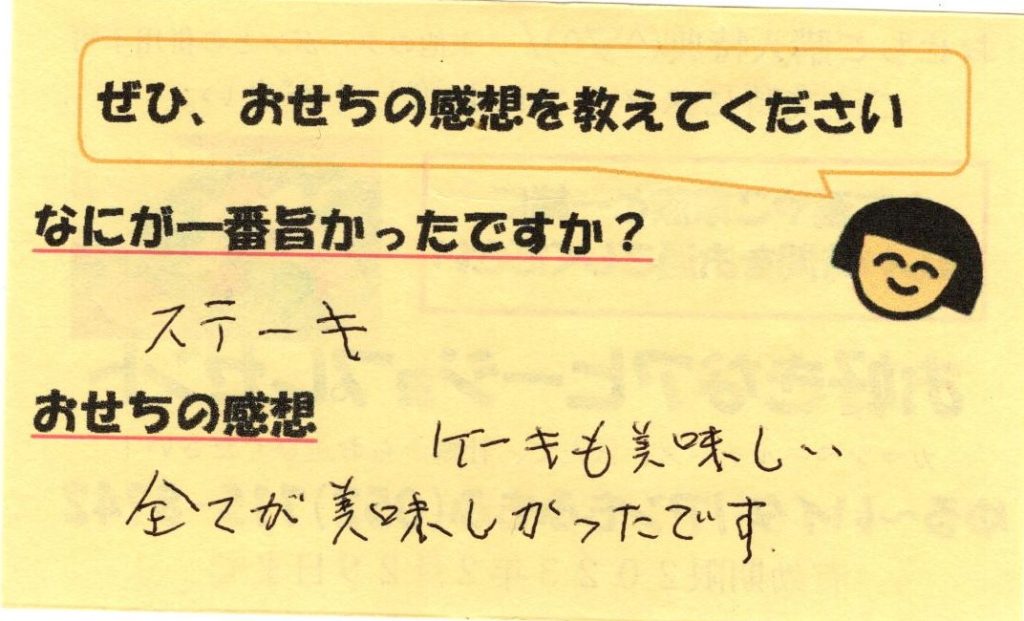 ぜひ、おせちの感想を教えてください
なにが一番旨かったですか?
ステーキ
おせちの感想
ケーキも美味しい
全てが美味しかったです